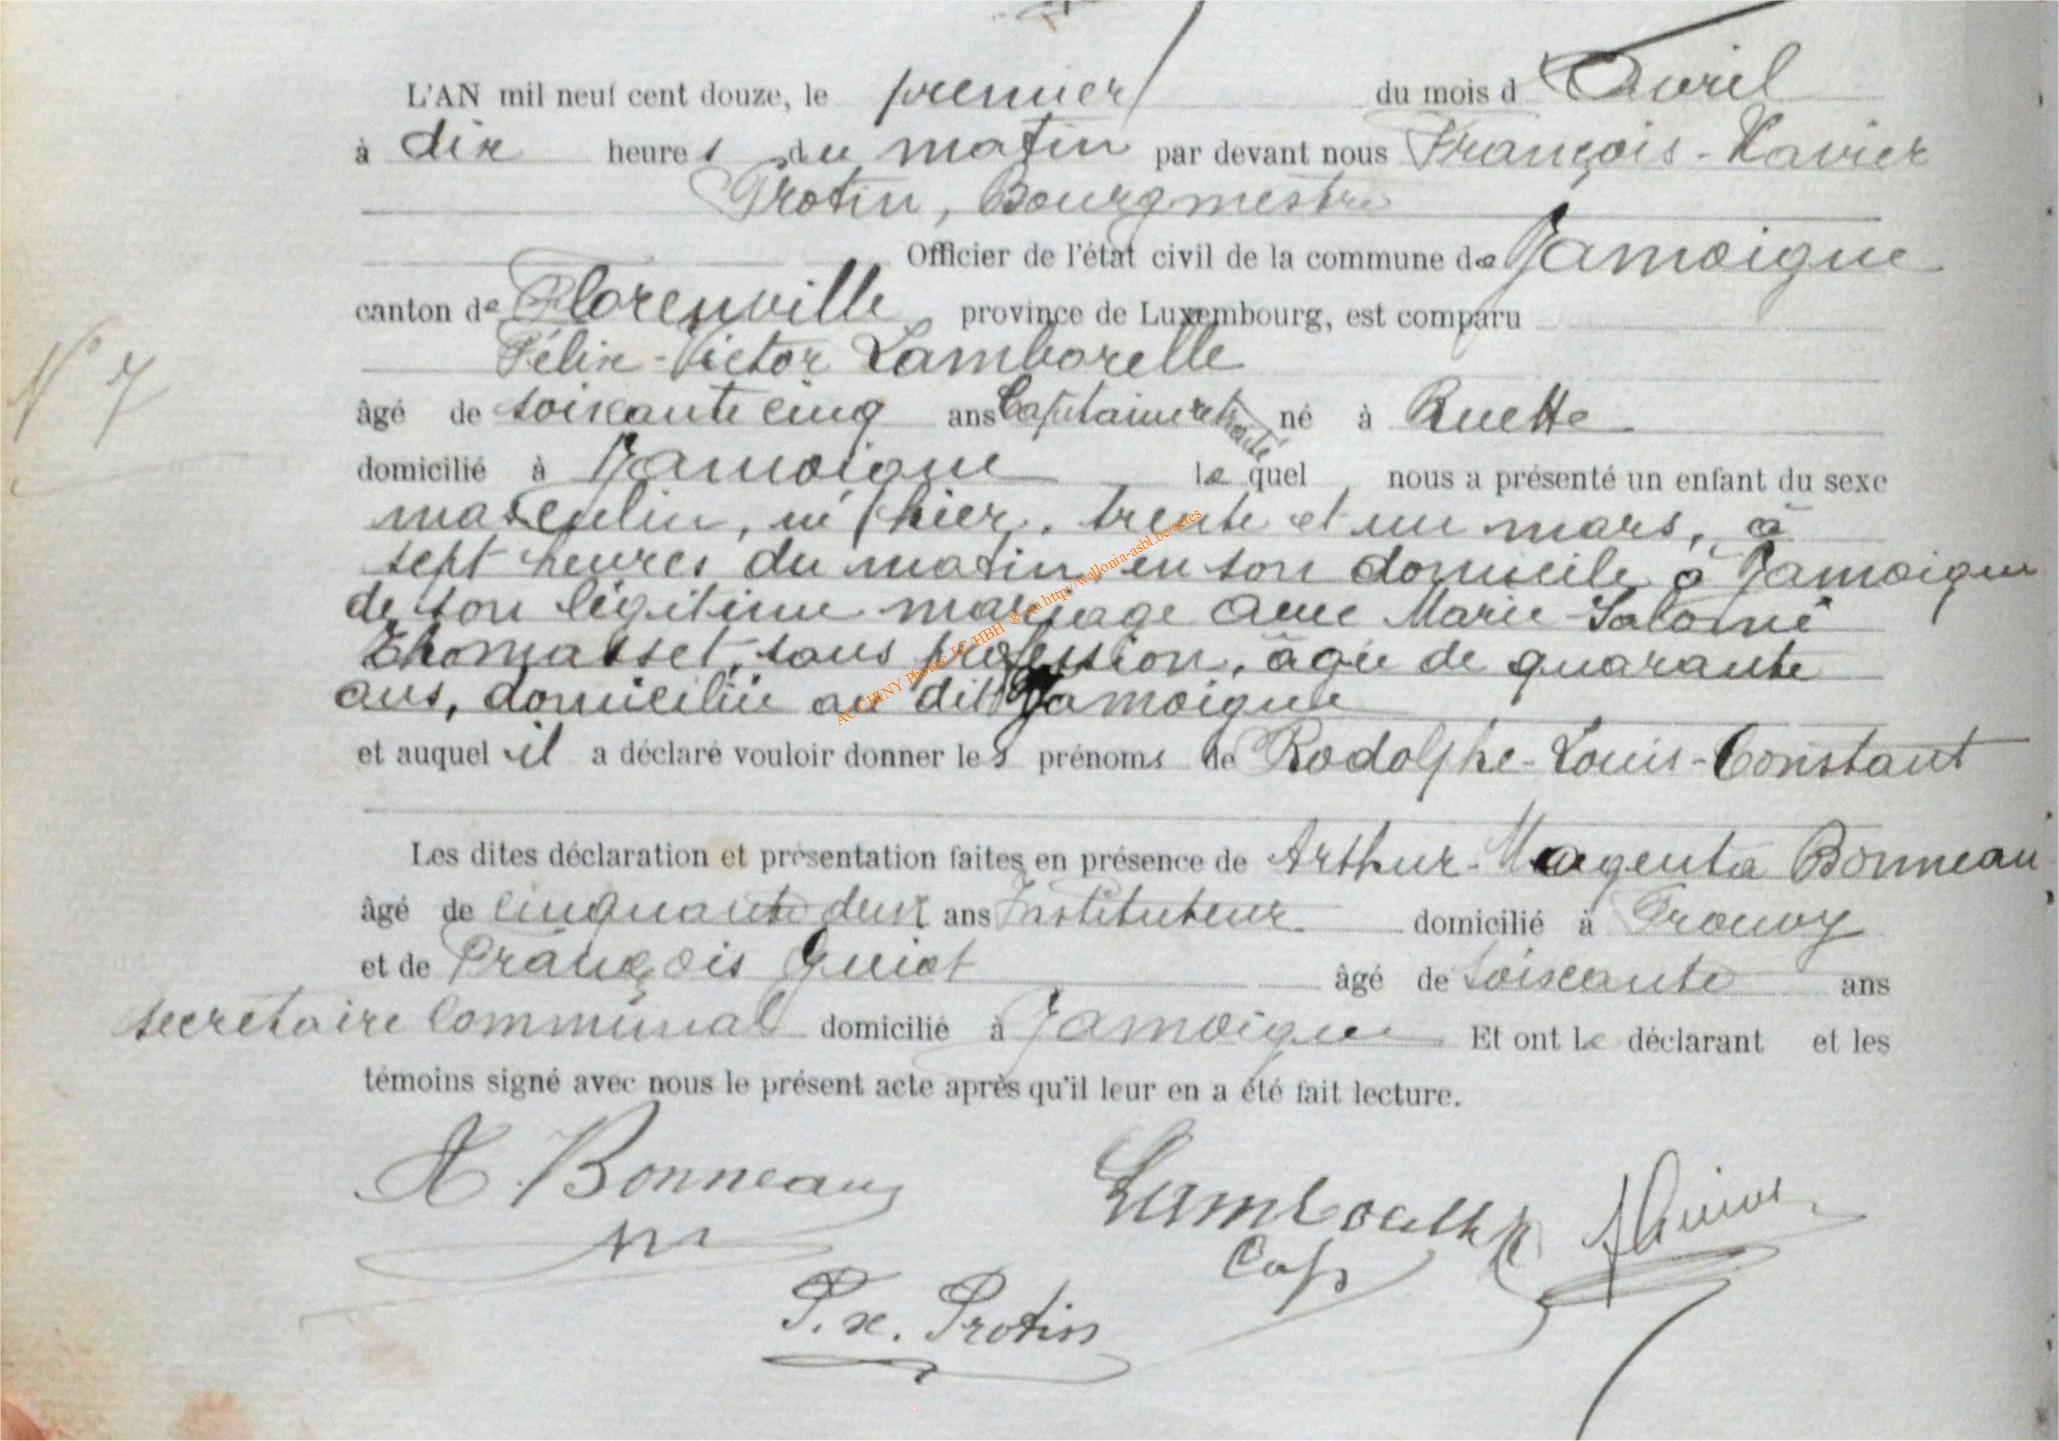 L'AN mil neuf cent douze, le premier du mois d'Avril
à dix heures du matin par devant nous François-Xavier
Protin, Bourgmestre
Officier de l'état civil de la commune de Jamoigne
canton de Florenville province de Luxembourg, est comparu
Félix-Victor Lamborelle
N° 7
âgé de soixante cinq ans Capitaine retraité né à Ruette
domicilié à Jamoigne lequel nous a présenté un enfant du sexe
masculin, né hier, trente et un mars, à
sept heures du matin en son domicile à Jamoigne
de son légitime mariage avec Marie-Salomé
Thomasset, sans profession, âgée de quarante
ans, domiciliée au dit Jamoigne
et auquel il a déclaré vouloir donner les prénoms de Rodolphe-Louis-Constant
Les dites déclaration et présentation faites en présence de Arthur-Magenta Bonneau
âgé de cinquante deux ans Instituteur domicilié à Prouvy
et de François Guiot âgé de soixante ans
secrétaire communal domicilié à Jamoigne Et ont le déclarant et les
témoins signé avec nous le présent acte après qu'il leur en a été fait lecture.
A. Bonneau
Lamborelle
Cap
F Guiot
F. x. Protin
ACCHINY Photos: LC/HBH ® via http://wallonia-asbl.be/actes